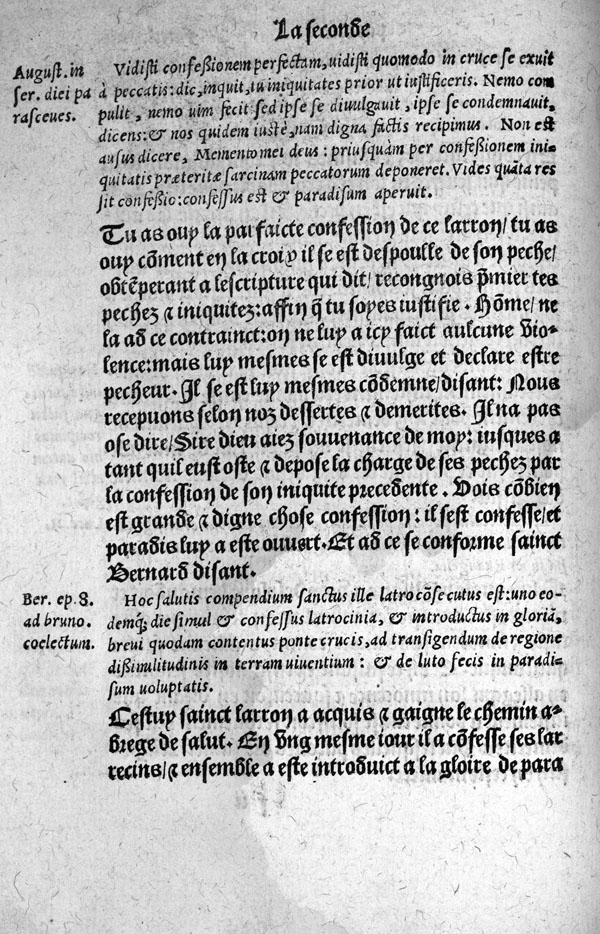 La seconde
August. in
ser. diei pa
rasceues.
Vidisti confeßionem perfectam, uidisti quomodo in cruce se exuit
à peccatis: dic, inquit, tu iniquitates prior ut iustificeris. Nemo com
pulit, nemo uim fecit sed ipse se diuulgauit, ipse se condemnauit,
dicens: & nos quidem iustè, nam digna factis recipimus. Non est
ausus dicere, Memento mei deus: priusquàm per confeßionem ini-
quitatis præteritæ sarcinam peccatorum deponeret. Vides quãta res
sit confeßio: confessus est & paradisum aperuit.
Tu as ouy la parfaicte confession de ce larron/ tu as
ouy cõment en la croiy il se est despoulle de son peche/
obtẽperant a lescripture qui dit/ recongnois p̃mier tes
pechez ⁊ iniquitez: affin q̃ tu soyes iustifie. Hõme/ ne
la ad ce contrainct: on ne luy a icy faict aulcune vio-
lence: mais luy mesmes se est diuulge et declare estre
pecheur. Il se est luy mesmes cõdemne/ disant: Nous
recepuons selon noz dessertes ⁊ demerites. Il na pas
ose dire/ Sire dieu aiez souuenance de moy: iusques a
tant quil eust oste ⁊ depose la charge de ses pechez par
la confession de son iniquite precedente. Vois cõbien
est grande ⁊ digne chose confession: il sest confesse/ et
paradis luy a este ouuert. Et ad ce se conforme sainct
Bernard disant.
Ber. ep. 8.
ad bruno.
coelectum.
Hoc salutis compendium sanctus ille latro cõsecutus est: uno eo-
demq; die simul & confessus latrocinia, & introductus in gloriã,
breui quodam contentus ponte crucis, ad transigendum de regione
dißimilitudinis in terram uiuentium: & de luto fecis in paradi-
sum uoluptatis.
Cestuy sainct larron a acquis ⁊ gaigne le chemin a-
brege de salut. En vng mesme iour il a cõfesse ses lar
recins/ ⁊ ensemble a este introduict a la gloire de para